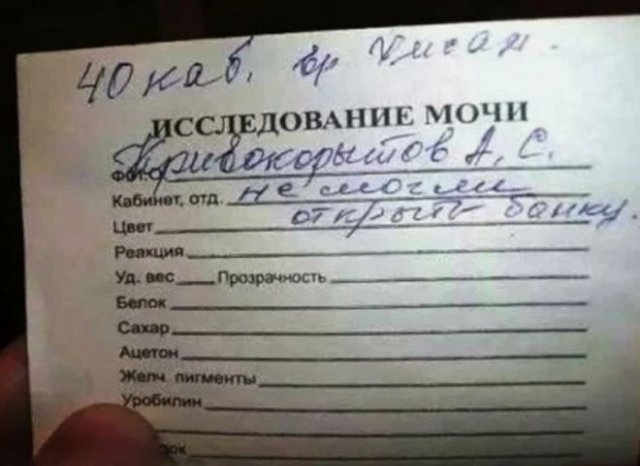 40 каб. вр
ИССЛЕДОВАНИЕ МОЧИ
Кривокорытов А. С.
Ф.И.О.
Кабинет, отд. не могли
Цвет открыть банку.
Реакция
Уд. вес Прозрачность
Белок
Сахар
Ацетон
Желч. пигменты
Уробилин